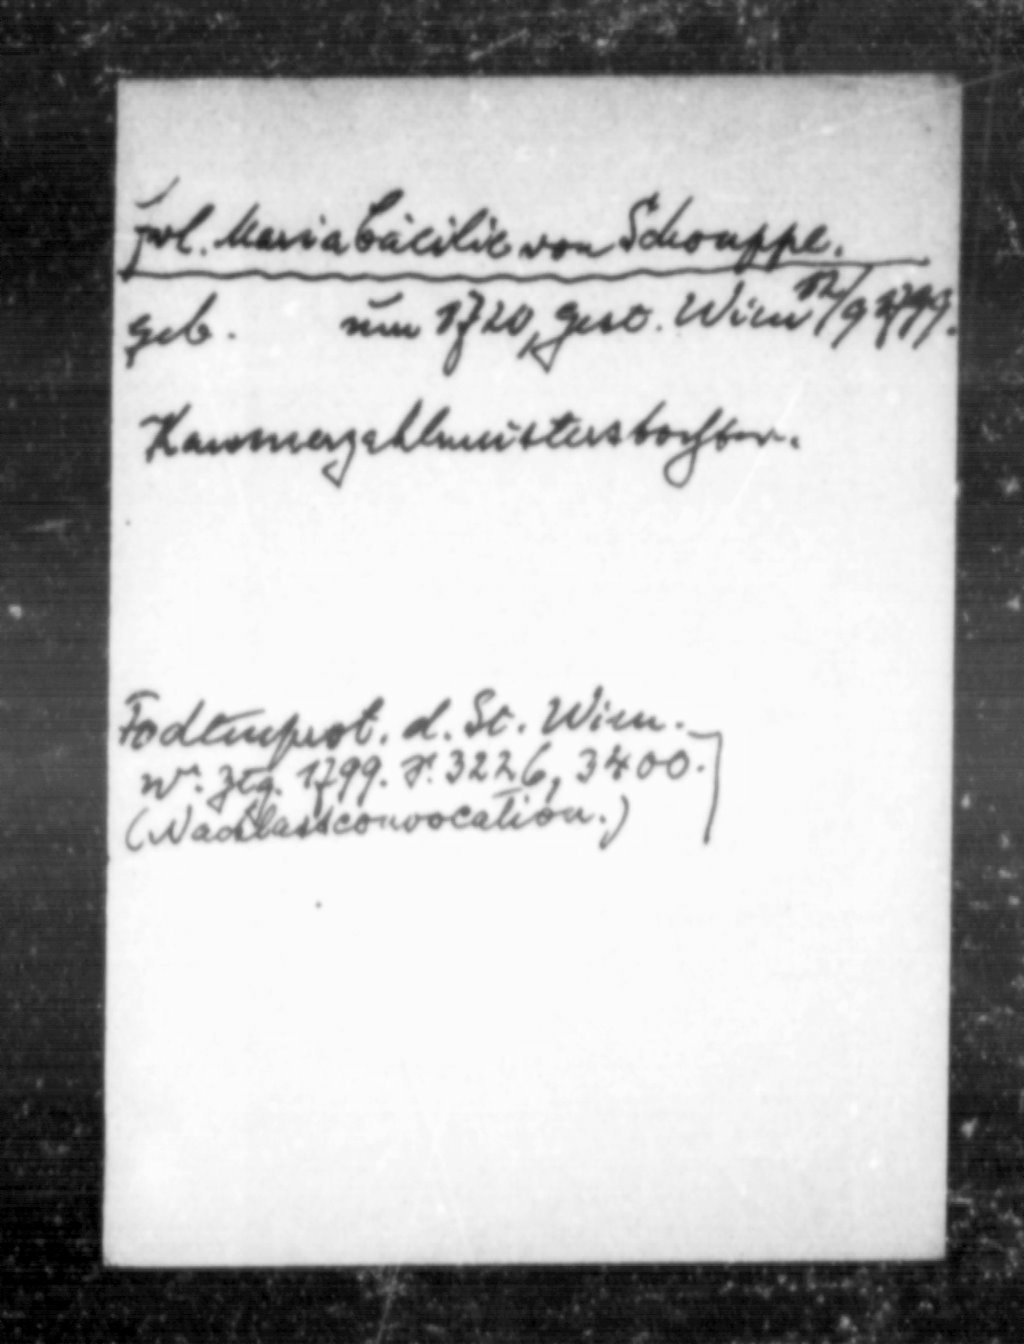 Frl. Maria Cäcilie von Schouppe.
geb. um 1720, gest. Wien 12/9 1799.
Kammerzahlmeisterstochter.
Todtenprot. d. St. Wien.
Wr. Ztg. 1799. S. 3226, 3400.
(Nachlassconvocation.)